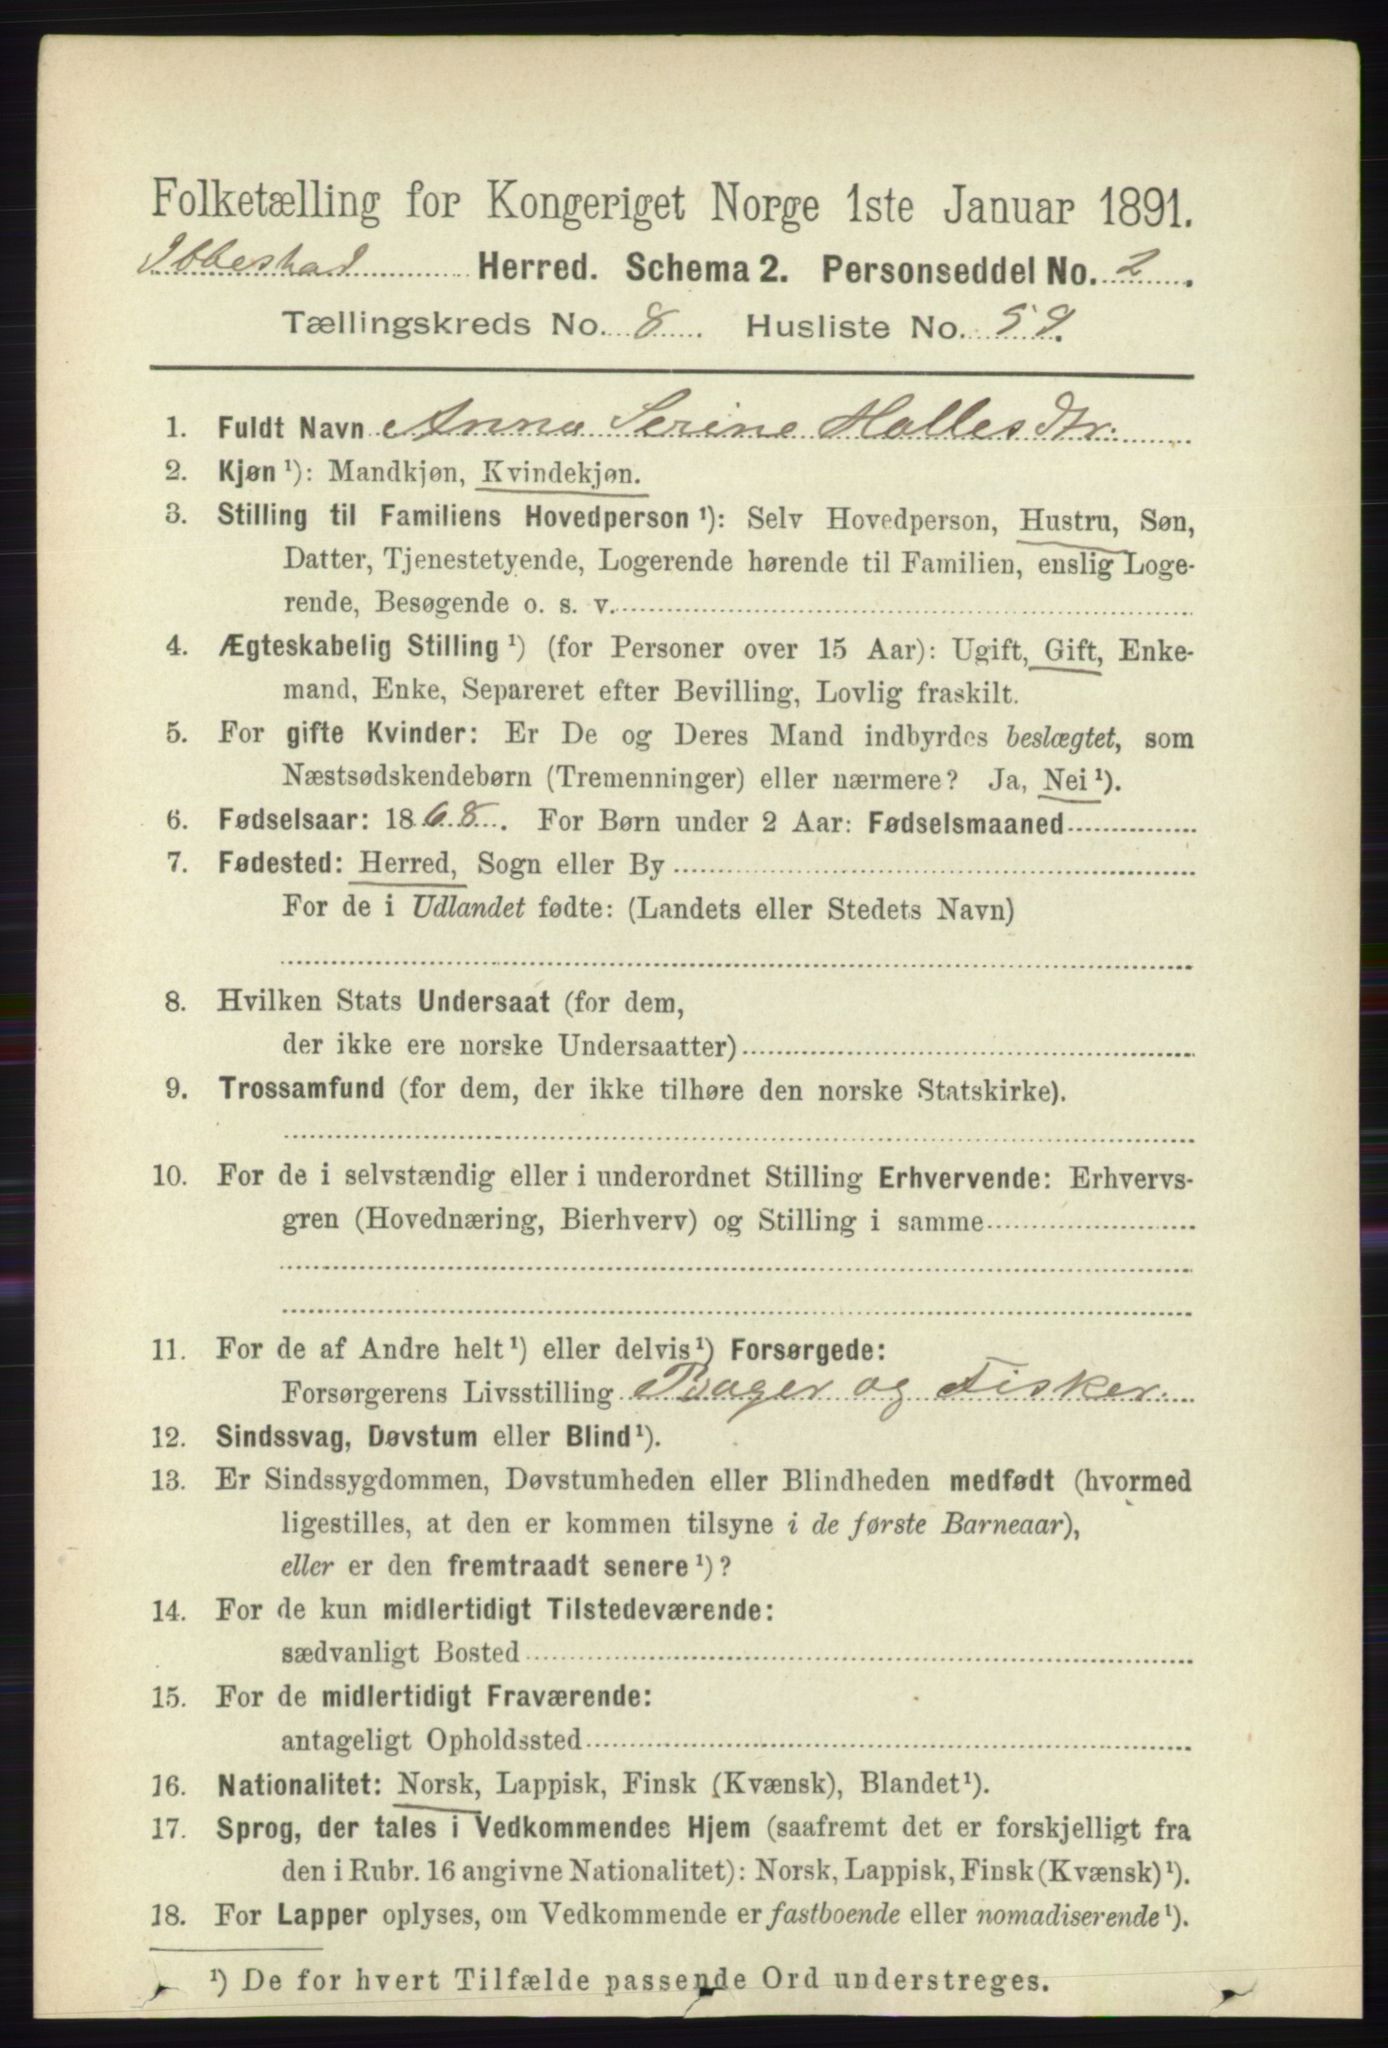 Folketælling for Kongeriget Norge 1ste Januar 1891.
Ibbestad Herred. Schema 2. Personseddel No. 2.
Tællingskreds No. 8. Husliste No. 59.
1. Fuldt Navn Anna Serine Hallesdtr.
2. Kjøn ¹): Mandkjøn, Kvindekjøn.
3. Stilling til Familiens Hovedperson ¹): Selv Hovedperson, Hustru, Søn,
Datter, Tjenestetyende, Logerende hørende til Familien, enslig Loge-
rende, Besøgende o. s. v.
4. Ægteskabelig Stilling ¹) (for Personer over 15 Aar): Ugift, Gift, Enke-
mand, Enke, Separeret efter Bevilling, Lovlig fraskilt.
5. For gifte Kvinder: Er De og Deres Mand indbyrdes beslægtet, som
Næstsødskendebørn (Tremenninger) eller nærmere? Ja, Nei ¹).
6. Fødselsaar: 1868. For Børn under 2 Aar: Fødselsmaaned
7. Fødested: Herred, Sogn eller By
For de i Udlandet fødte: (Landets eller Stedets Navn)
8. Hvilken Stats Undersaat (for dem,
der ikke ere norske Undersaatter)
9. Trossamfund (for dem, der ikke tilhøre den norske Statskirke).
10. For de i selvstændig eller i underordnet Stilling Erhvervende: Erhvervs-
gren (Hovednæring, Bierhverv) og Stilling i samme
11. For de af Andre helt ¹) eller delvis ¹) Forsørgede:
Forsørgerens Livsstilling Bager og Fisker.
12. Sindssvag, Døvstum eller Blind ¹).
13. Er Sindssygdommen, Døvstumheden eller Blindheden medfødt (hvormed
ligestilles, at den er kommen tilsyne i de første Barneaar),
eller er den fremtraadt senere ¹)?
14. For de kun midlertidigt Tilstedeværende:
sædvanligt Bosted
15. For de midlertidigt Fraværende:
antageligt Opholdssted
16. Nationalitet: Norsk, Lappisk, Finsk (Kvænsk), Blandet ¹).
17. Sprog, der tales i Vedkommendes Hjem (saafremt det er forskjelligt fra
den i Rubr. 16 angivne Nationalitet): Norsk, Lappisk, Finsk (Kvænsk) ¹).
18. For Lapper oplyses, om Vedkommende er fastboende eller nomadiserende ¹).
¹) De for hvert Tilfælde passende Ord understreges.